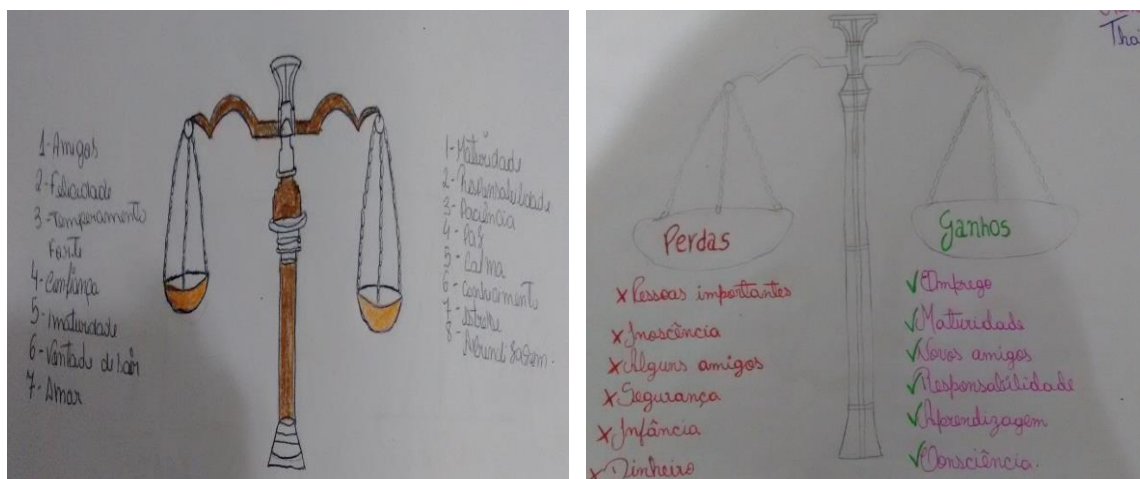 1- Amigos
2- Felicidade
3- Temperamento
Forte
4- Confiança
5- imaturidade
6- Vontade de sair
7- Amar
1- Maturidade
2- Responsabilidade
3- Paciência
4- Paz
5- Calma
6- Conhecimento
7-
8- Aprendizagem.
Perdas
x Pessoas importantes
x Inoscência
x Alguns amigos
x Segurança
x Infância
x Dinheiro
Ganhos
✓ Emprego
✓ Maturidade
✓ Novos amigos
✓ Responsabilidade
✓ Aprendizagem
✓ Consciência.